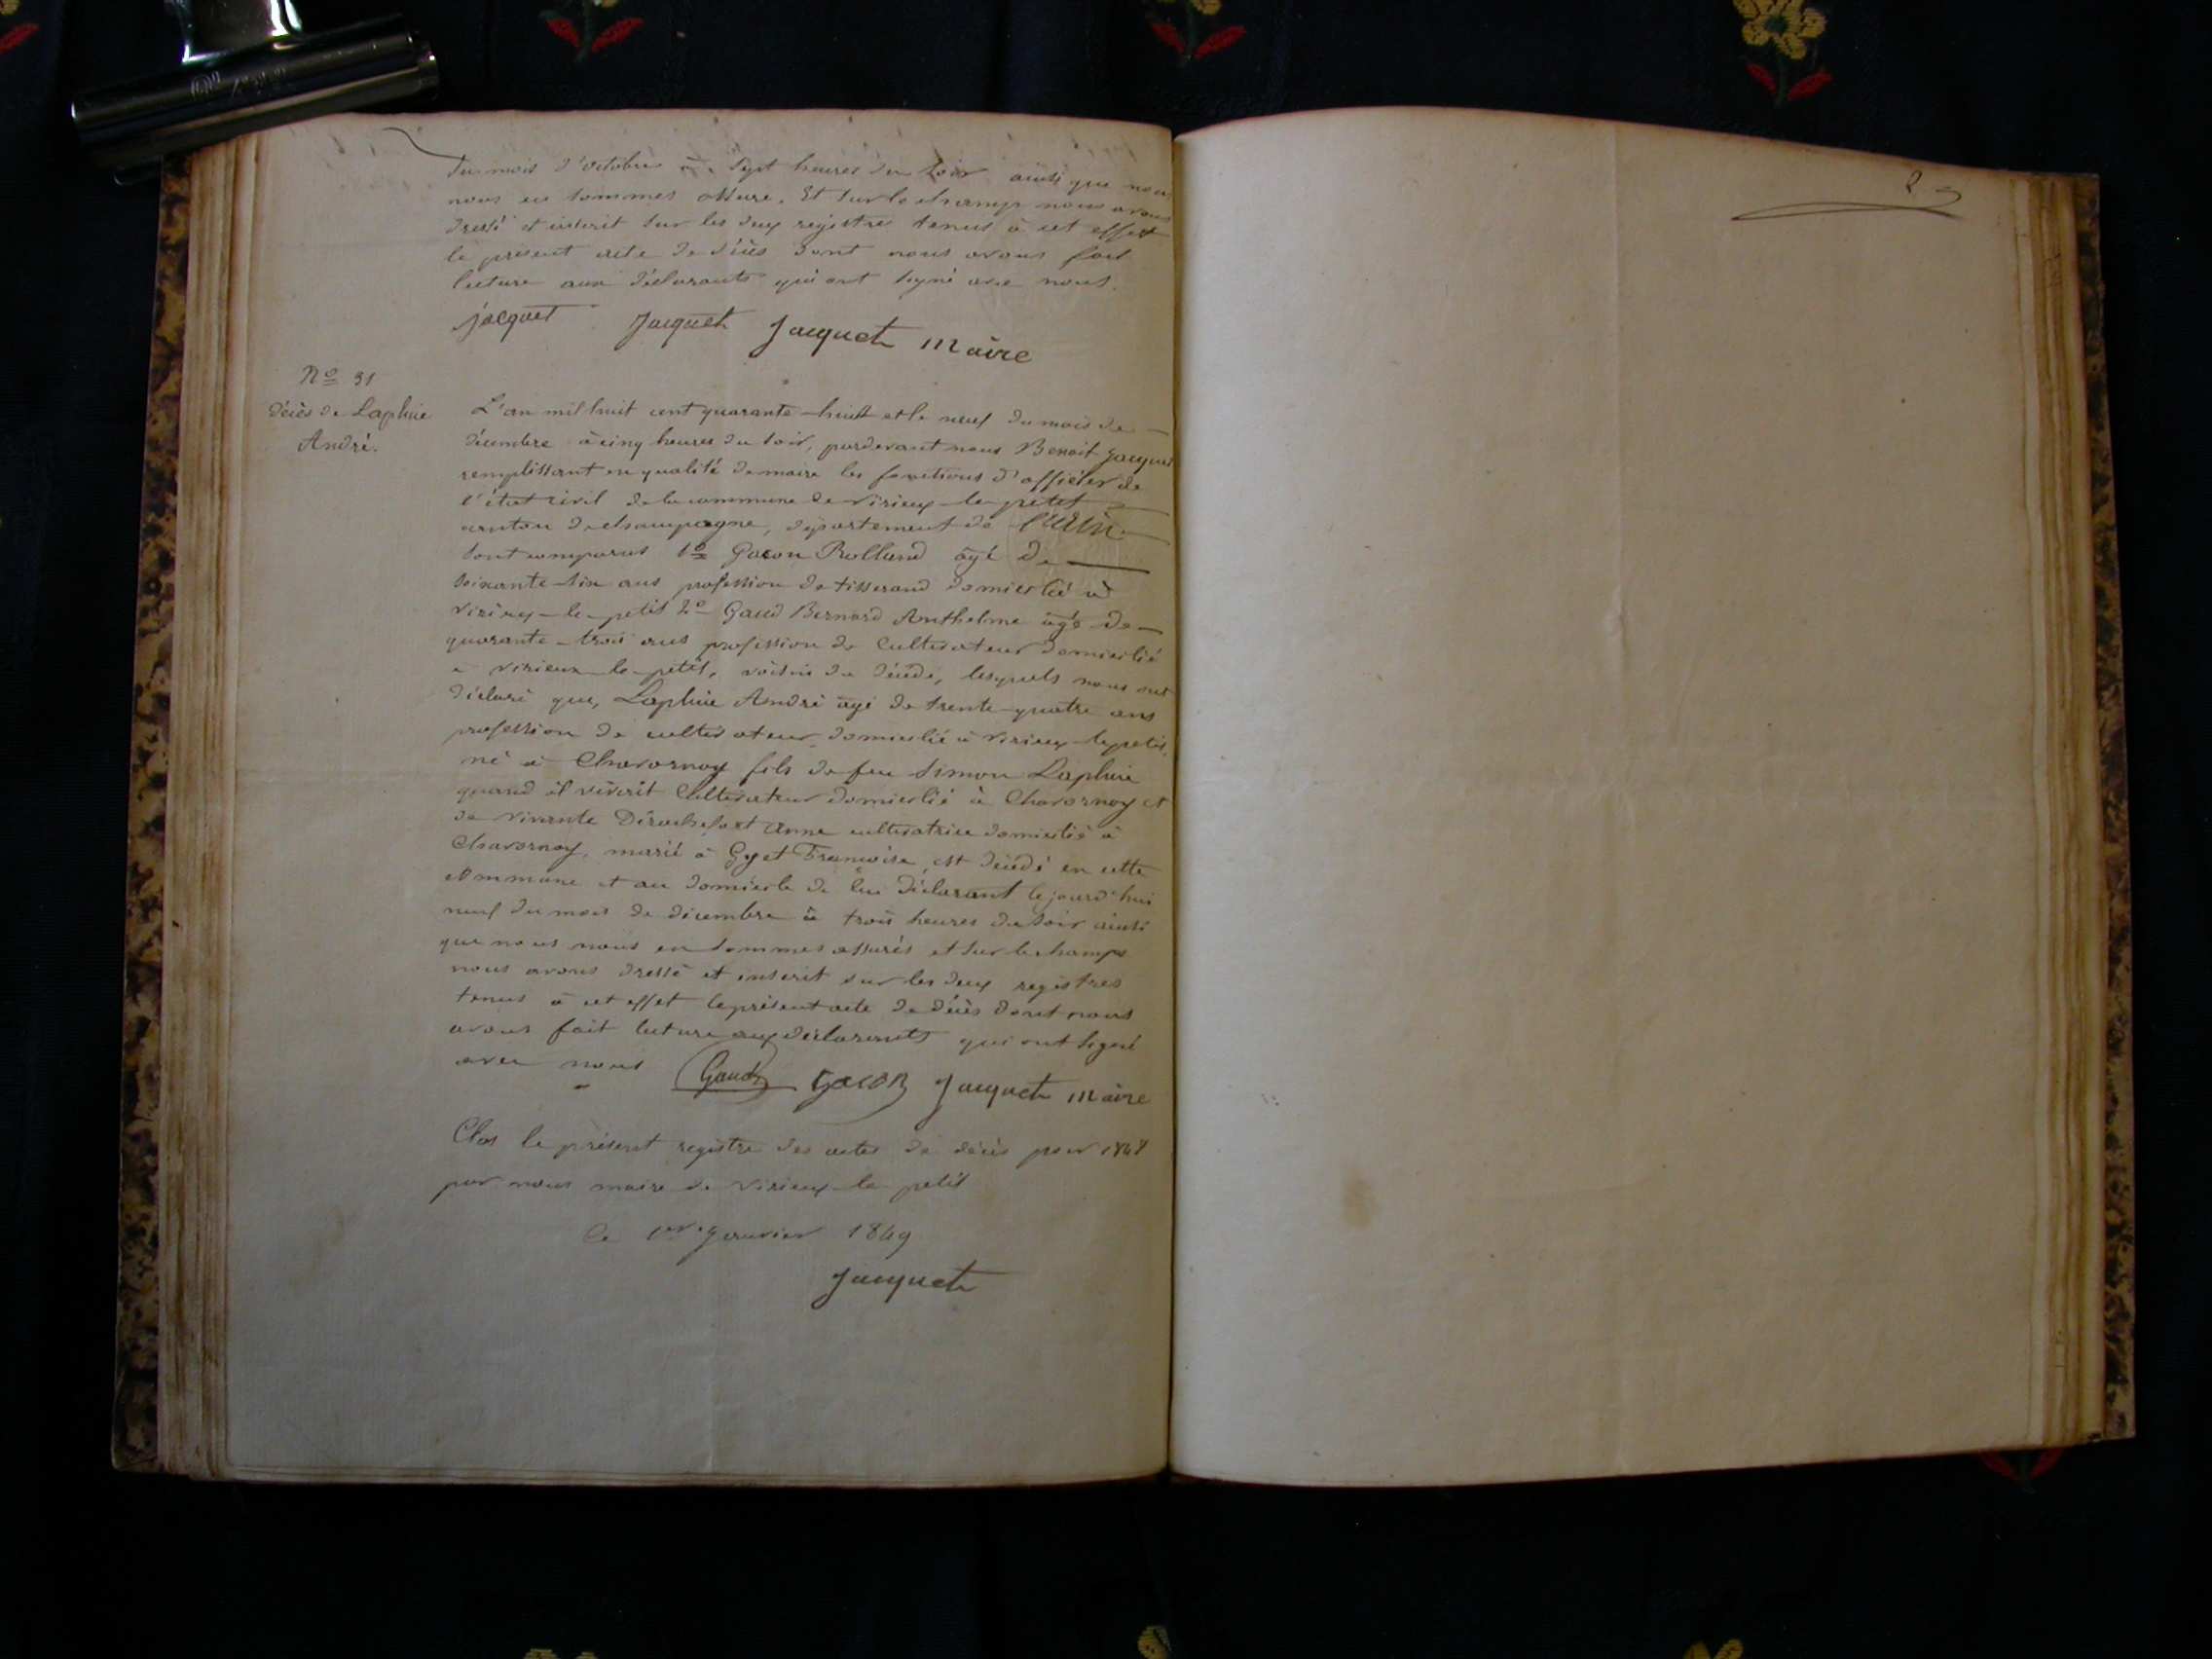 du mois d'octobre à sept heures du soir ainsi que nous
nous en sommes assuré. Et sur le champ nous avons
dressé et inscrit sur les deux registres tenus à cet effet
le présent acte de décès dont nous avons fait
lecture aux déclarants qui ont signé avec nous.
jacquet Jacquet Jacquet maire
No 31
décès de Laphie
André.
L'an mil huit cent quarante-huit et le neuf du mois de
décembre à cinq heures du soir, pardevant nous Benoit Jacquet
remplissant en qualité de maire les fonctions d'officier de
l'état civil de la commune de virieux-le-petit
canton de champagne, département de l'ain
sont comparus 1o Gacon Rolland âgé de
soixante-six ans profession de tisserand domicilié à
virieux-le-petit 2o Gaud Bernard Anthelme âgé de
quarante-trois ans profession de Cultivateur domicilié
a virieux-le-petit, voisins du décédé, lesquels nous ont
déclaré que, Laphie André âgé de trente-quatre ans
profession de cultivateur domicilié à virieux-le petit,
né à Chavornay fils de feu Simon Laphie
quand il vivait Cultivateur domicilié à Chavornay et
de vivante Dérochefort anne cultivatrice domicilié à
Chavornay, marié à Gyet Francoise, est décédé en cette
commune et au domicile de lui déclarant cejourd'hui
neuf du mois de décembre à trois heures du soir ainsi
que nous nous en sommes assurés et sur le champs
nous avons dressé et inscrit sur les deux registres
tenus à cet effet le présent acte de décès dont nous
avons fait lecture aux déclarants qui ont signé
avec nous Gaud Gacon Jacquet maire
Clos le présent registre des actes de décès pour 1848
par nous maire de virieux-le petit
le 1er Janvier 1849
Jacquet